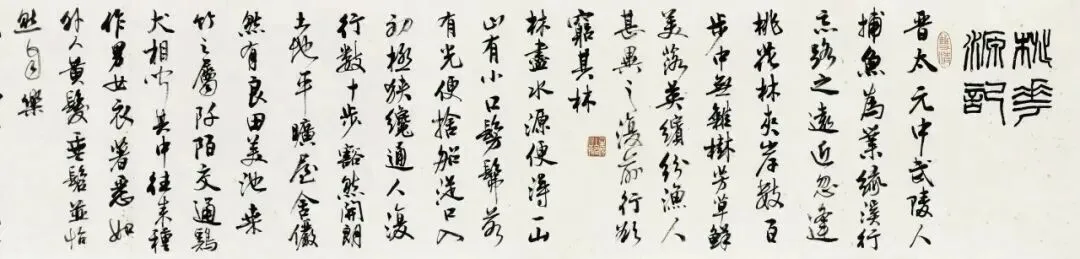 桃花
源記
晉太元中武陵人
捕魚為業緣溪行
忘路之遠近忽逢
桃花林夾岸數百
步中無雜樹芳草鮮
美落英繽紛漁人
甚異之復前行欲
窮其林
林盡水源便得一山
山有小口髣髴若
有光便捨船從口入
初極狹纔通人復
行數十步豁然開朗
土地平曠屋舍儼
然有良田美池桑
竹之屬阡陌交通鷄
犬相聞其中往來種
作男女衣著悉如
外人黄髮垂髫並怡
然自樂